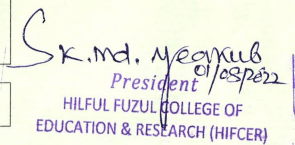 Sk. Md. Yeakub
01/08/2022
President
HILFUL FUZUL COLLEGE OF
EDUCATION & RESEARCH (HIFCER)